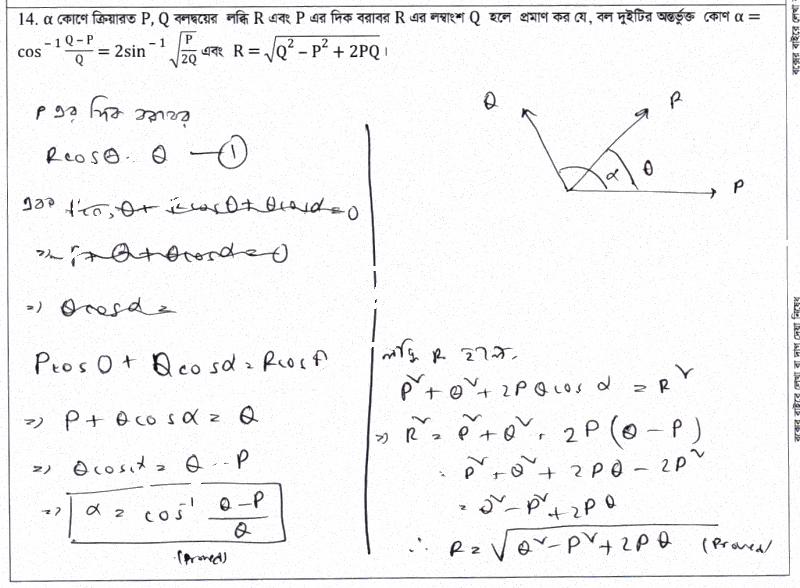 14. α কোণে ক্রিয়ারত P, Q বলদ্বয়ের লব্ধি R এবং P এর দিক বরাবর R এর লম্বাংশ Q হলে প্রমাণ কর যে, বল দুইটির অন্তর্ভুক্ত কোণ α =
cos⁻¹ (Q-P)/Q = 2sin⁻¹ √(P/2Q) এবং R = √(Q² - P² + 2PQ) ।
P এর দিক বরাবর
Rcosθ = Q —(1)
Q
R
α
θ
P
⇒ Qcosα =
Pcos0 + Qcosα = Rcosθ
⇒ P + Qcosα = Q
⇒ Qcosα = Q - P
⇒ α = cos⁻¹ (Q-P)/Q
(Proved)
লব্ধি R হলে,
P² + Q² + 2PQcosα = R²
⇒ R² = P² + Q² + 2P(Q-P)
= P² + Q² + 2PQ - 2P²
= Q² - P² + 2PQ
∴ R = √(Q² - P² + 2PQ) (Proved)